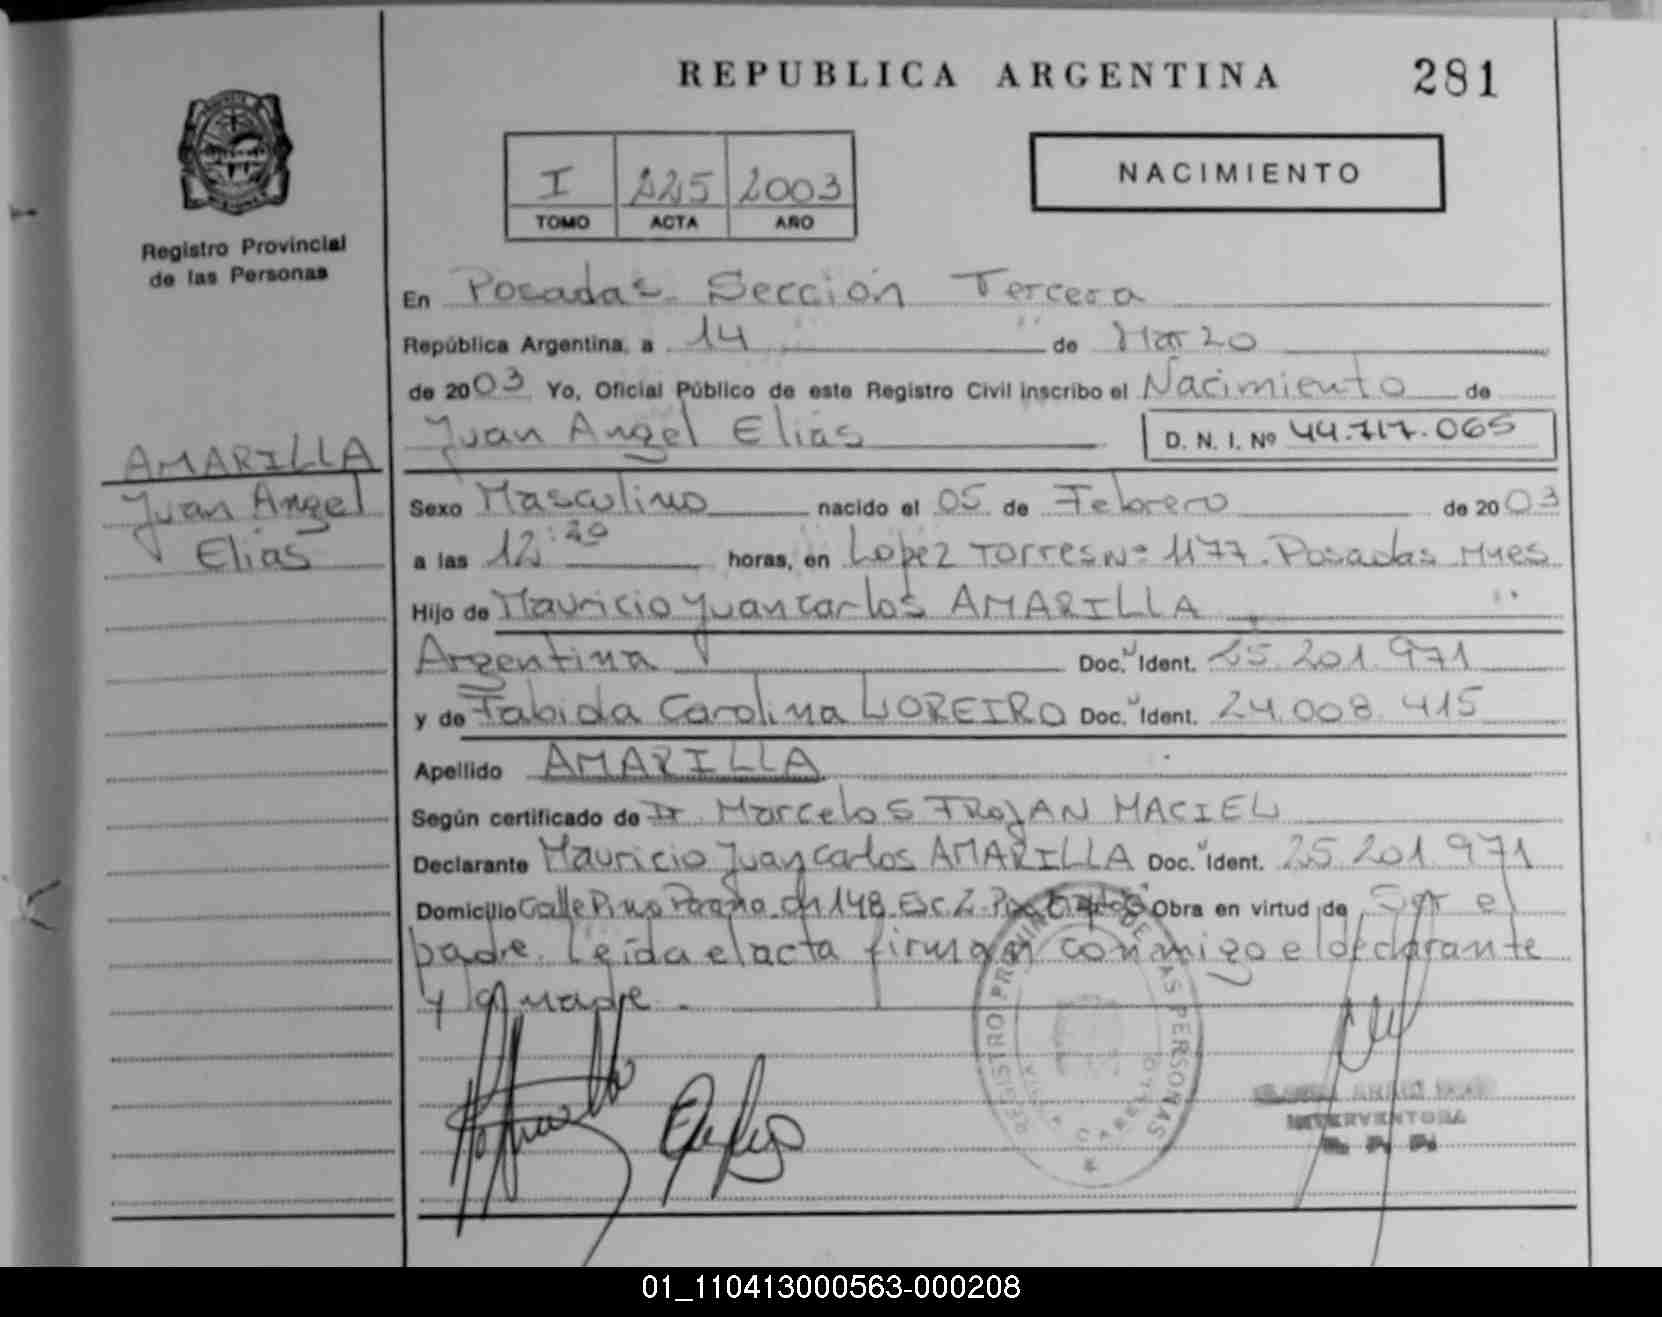 REPUBLICA ARGENTINA
281
I 225 2003
TOMO ACTA AÑO
NACIMIENTO
Registro Provincial
de las Personas
En Posadas Sección Tercera
República Argentina, a 14 de Marzo
de 2003 Yo, Oficial Público de este Registro Civil inscribo el Nacimiento de
Juan Angel Elias D. N. I. Nº 44.717.065
AMARILLA
Juan Angel
Elias
Sexo Masculino nacido el 05 de Febrero de 2003
a las 12:20 horas, en Lopez Torres Nº 1177. Posadas Mnes
Hijo de Mauricio Juan Carlos AMARILLA
Argentina Doc. Ident. 25.201.971
y de Carolina LOREIRO Doc. Ident. 24.008.415
Apellido AMARILLA
Según certificado de Dr. Marcelo S TROJAN MACIEL
Declarante Mauricio Juan Carlos AMARILLA Doc. Ident. 25.201.971
Domicilio Calle Pino 148 Esc. 2 Obra en virtud de Ser el
padre. Leída el acta firman conmigo el declarante
y la madre.
REGISTRO PROVINCIAL DE LAS PERSONAS
INTERVENTORA
01_110413000563-000208